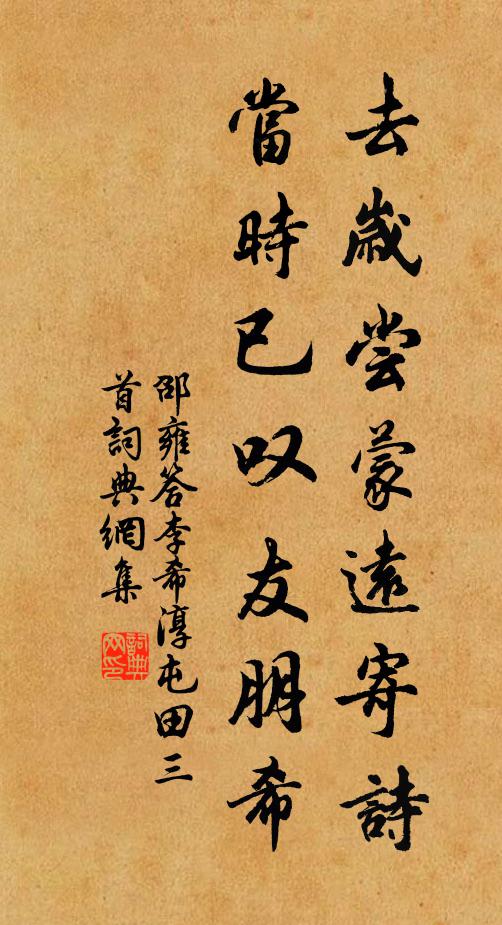 去歲尝蒙遠寄詩
當時已叹友朋希
邵雍答李希淳屯田三
首詞典網集
詞典网印